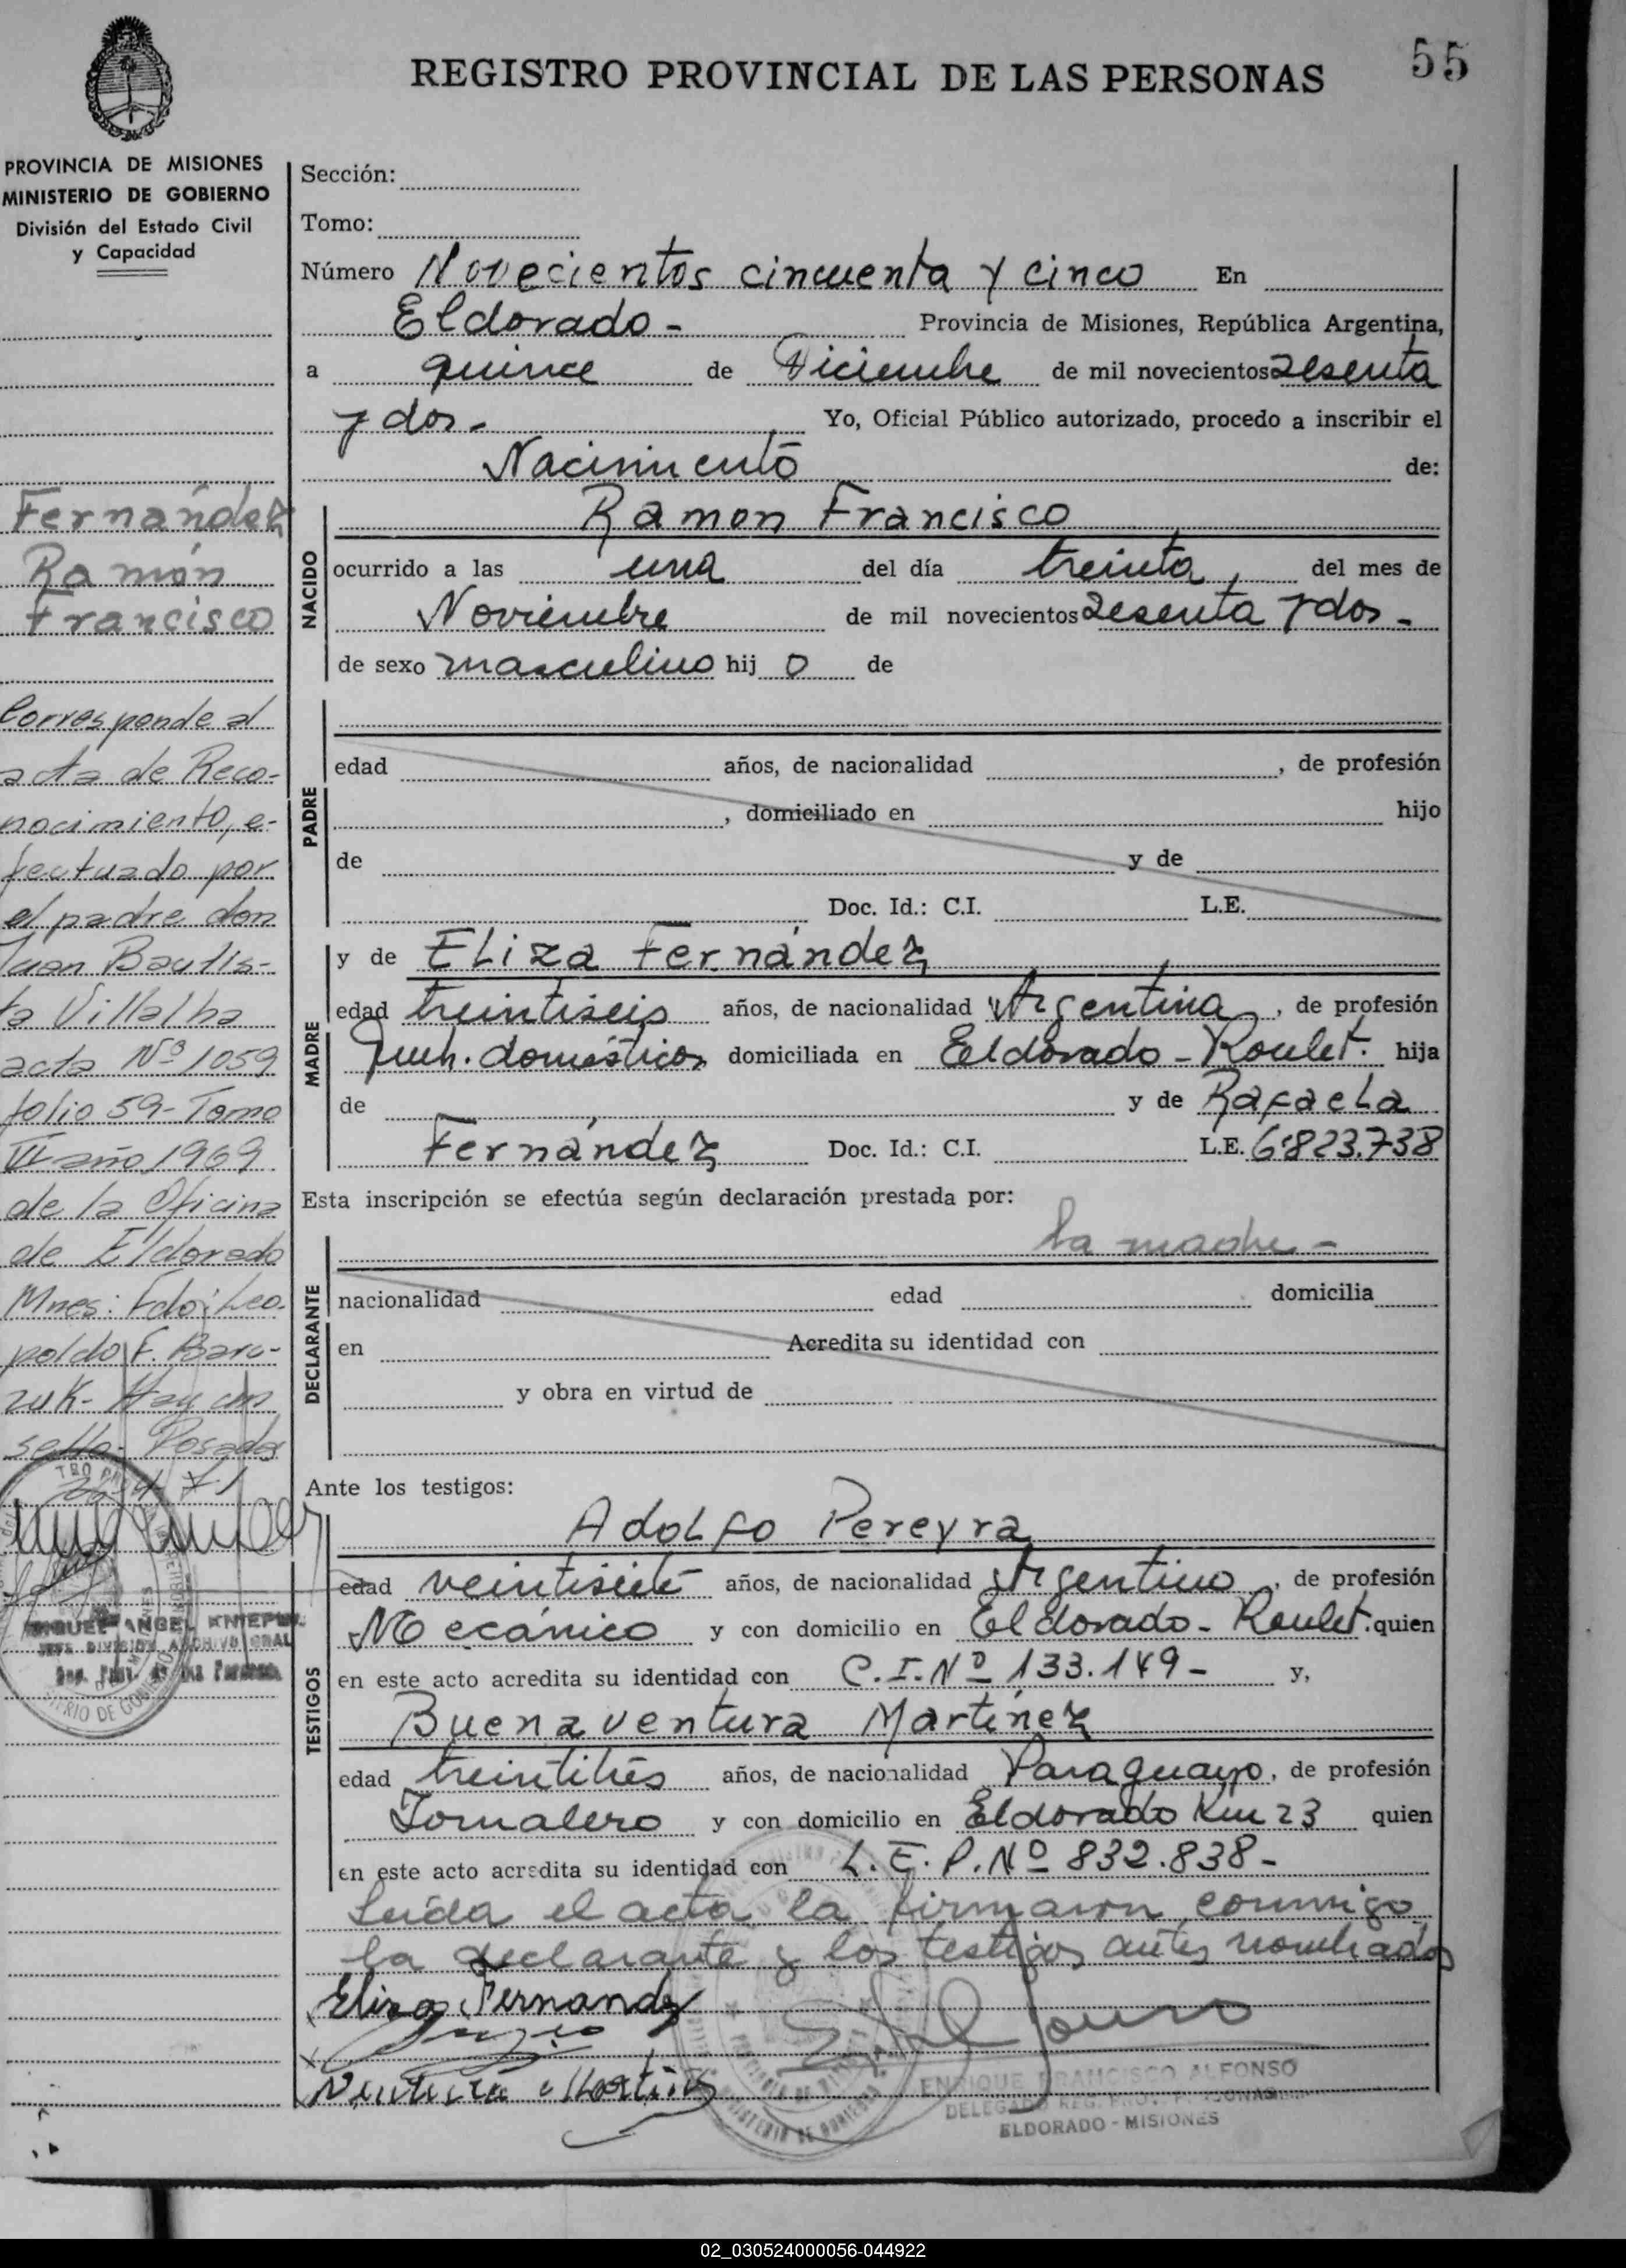 55
REGISTRO PROVINCIAL DE LAS PERSONAS
PROVINCIA DE MISIONES
MINISTERIO DE GOBIERNO
División del Estado Civil
y Capacidad
Fernández
Ramón
Francisco
Corresponde al
acta de Reco-
nocimiento, e-
fectuado por
el padre don
Juan Bautis-
ta Villalba
acta Nº 1059
folio 59 - Tomo
VI año 1969
de la Oficina
de Eldorado
Mnes: Fdo: Leo-
poldo F. Bara-
zuk - Hay un
sello - Posadas
MIGUEL ANGEL
JEFE DIVISION ARCHIVO GRAL
Sección:
Tomo:
Número Novecientos cincuenta y cinco En
Eldorado - Provincia de Misiones, República Argentina,
a quince de Diciembre de mil novecientos sesenta
y dos. - Yo, Oficial Público autorizado, procedo a inscribir el
Nacimiento de:
NACIDO
Ramon Francisco
ocurrido a las una del día treinta del mes de
Noviembre de mil novecientos sesenta y dos -
de sexo masculino hij o de
PADRE
edad años, de nacionalidad , de profesión
, domiciliado en hijo
de y de
Doc. Id.: C.I. L.E.
MADRE
y de Eliza Fernández
edad treintiseis años, de nacionalidad Argentina, de profesión
Queh. domésticos domiciliada en Eldorado - Roulet. hija
de y de Rafaela
Fernández Doc. Id.: C.I. L.E. 6.823.738
Esta inscripción se efectúa según declaración prestada por:
DECLARANTE
la madre -
nacionalidad edad domicilia
en Acredita su identidad con
y obra en virtud de
Ante los testigos:
TESTIGOS
Adolfo Pereyra
edad veintisiete años, de nacionalidad Argentino, de profesión
Mecánico y con domicilio en Eldorado - Roulet. quien
en este acto acredita su identidad con C.I. Nº 133.149 - y,
Buenaventura Martínez
edad treintitrés años, de nacionalidad Paraguayo, de profesión
Jornalero y con domicilio en Eldorado Km 23 quien
en este acto acredita su identidad con L.E.P. Nº 832.838 -
Leída el acta la firmaron conmigo
la declarante y los testigos antes nombrados
Eliza Fernandez
ENRIQUE FRANCISCO ALFONSO
DELEGADO REG. PROV. PERSONAS
ELDORADO - MISIONES
02_030524000056-044922